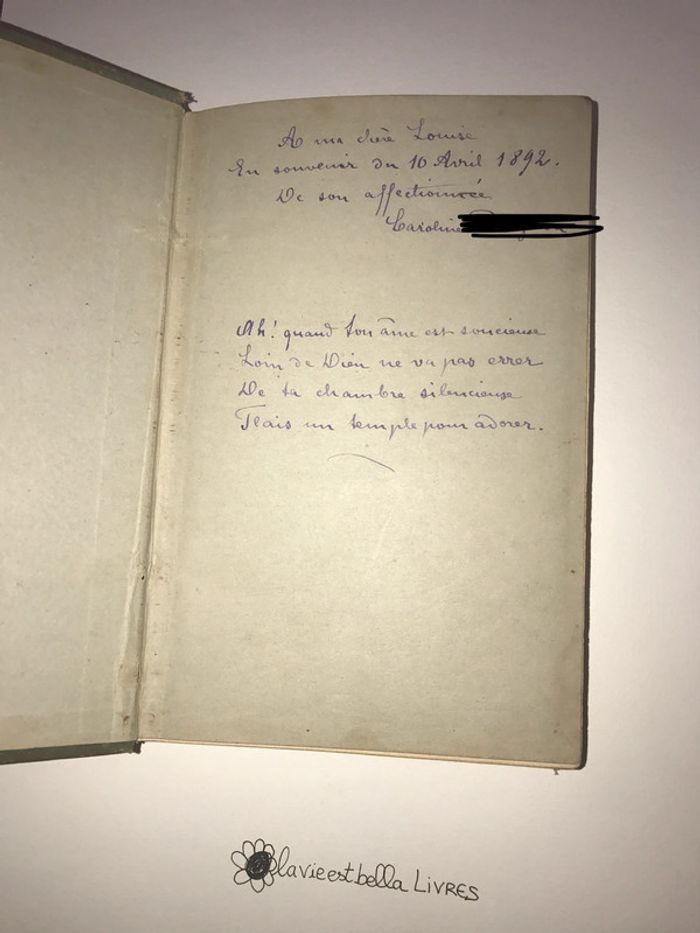 A ma chère Louise
En souvenir du 10 Avril 1892.
De son affectionnée
Caroline
Ah! quand ton âme est soucieuse
Loin de Dieu ne va pas errer
De ta chambre silencieuse
Fais un temple pour adorer.
lavieestbella LIVRES